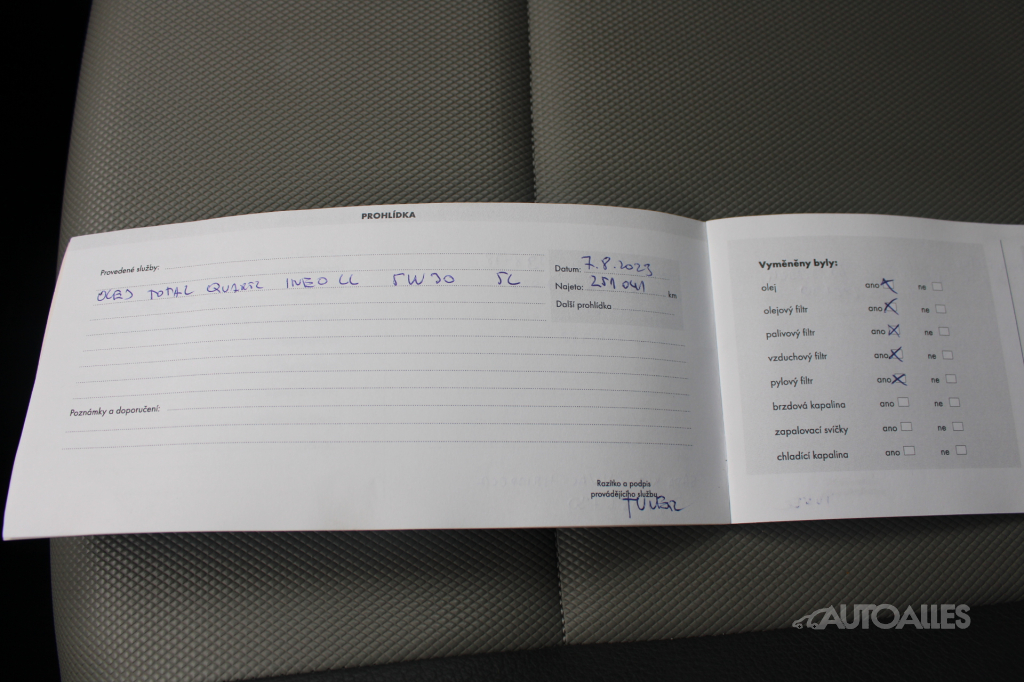 PROHLÍDKA
Provedené služby:
OLEJ TOTAL QUARTZ INEO LL 5W30 5L
Datum: 7.8.2023
Najeto: 251 041 km
Další prohlídka
Poznámky a doporučení:
Razítko a podpis
provádějícího služby
Vyměněny byly:
olej ano ne
olejový filtr ano ne
palivový filtr ano ne
vzduchový filtr ano ne
pylový filtr ano ne
brzdová kapalina ano ne
zapalovací svíčky ano ne
chladící kapalina ano ne
AUTOALLES